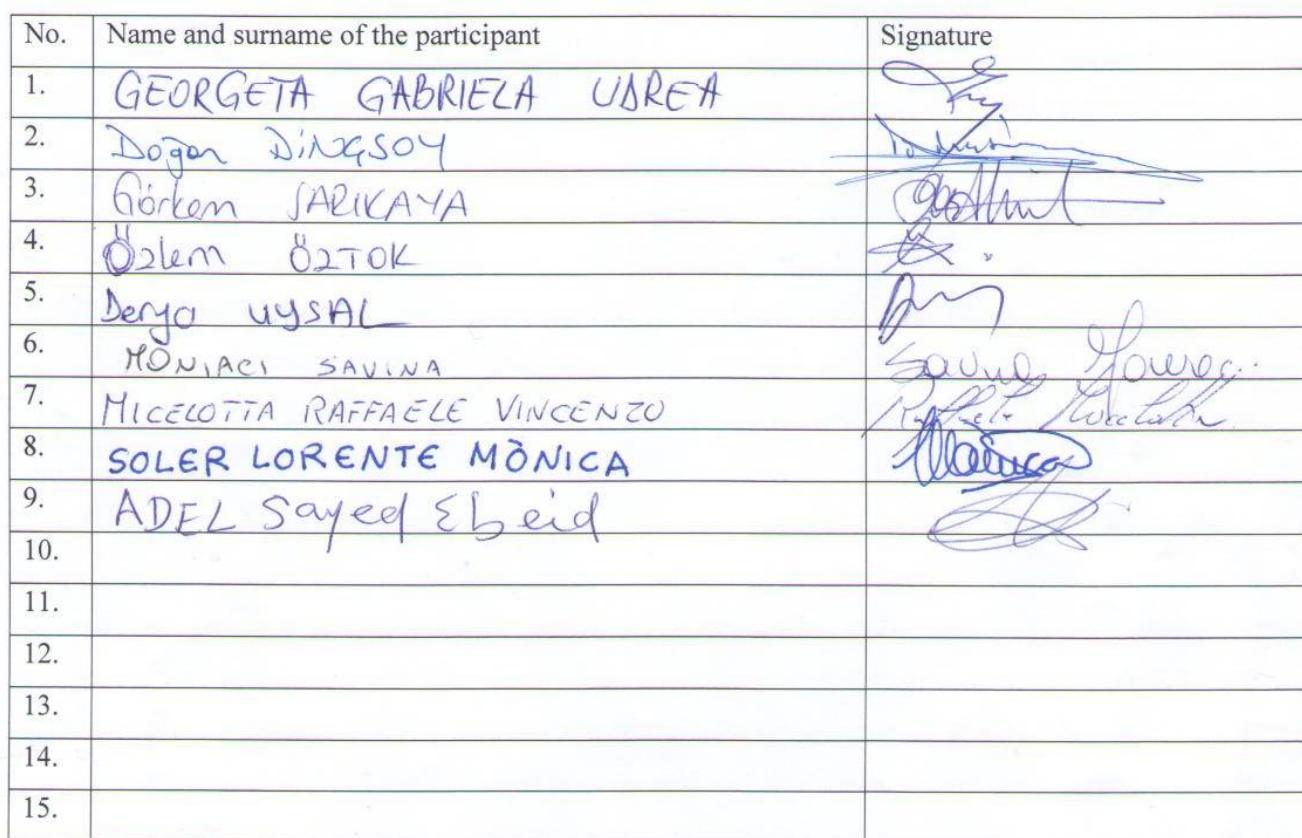 No. Name and surname of the participant Signature
1. GEORGETA GABRIELA UDREA
2. Doğan DİNÇSOY
3. Görkem SARIKAYA
4. Özlem ÖZTOK
5. Derya UYSAL
6. MONIACI SAVINA Savina
7. MICELOTTA RAFFAELE VINCENZO Raffaele Micelotta
8. SOLER LORENTE MÒNICA Mònica
9. ADEL Sayed Ebeid
10.
11.
12.
13.
14.
15.